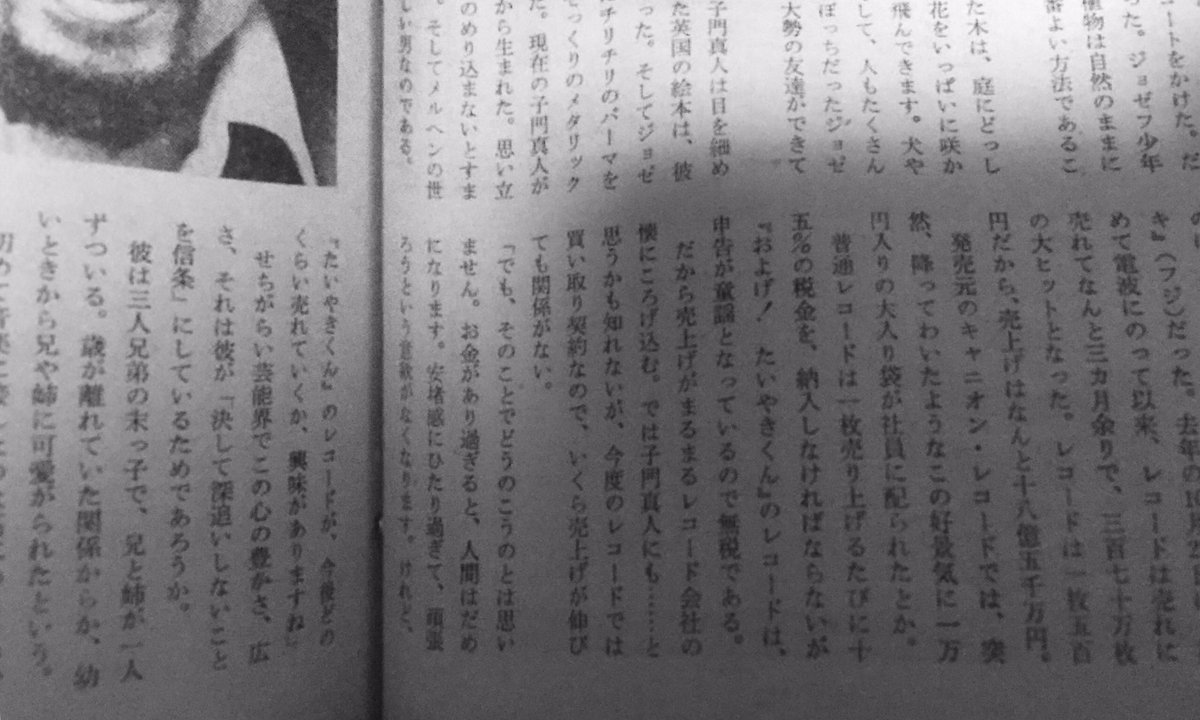 コートをかけた。だ
った。ジョゼフ少年
植物は自然のままに
番よい方法であるこ
た木は、庭にどっし
花をいっぱいに咲か
飛んできます。犬や
して、人もたくさん
ぼっちだったジョゼ
大勢の友達ができて
子門真人は目を細め
た英国の絵本は、彼
った。そしてジョゼ
チリチリのパーマを
そっくりのメタリック
た。現在の子門真人が
から生まれた。思い立
のめり込まないとすま
。そしてメルヘンの世
しい男なのである。
キ』(フジ)だった。去年の
めて電波にのって以来、レコードは売れに
売れてなんと三カ月余りで、三百七十万枚
の大ヒットとなった。レコードは一枚五百
円だから、売上げはなんと十八億五千万円。
発売元のキャニオン・レコードでは、突
然、降ってわいたようなこの好景気に一万
円入りの大入り袋が社員に配られたとか。
普通レコードは一枚売り上げるたびに十
五%の税金を、納入しなければならないが
『およげ!たいやきくん』のレコードは、
申告が童謡となっているので無税である。
だから売上げがまるまるレコード会社の
懐にころげ込む。では子門真人にも……と
思うかも知れないが、今度のレコードでは
買い取り契約なので、いくら売上げが伸び
ても関係がない。
「でも、そのことでどうのこうのとは思い
ません。お金があり過ぎると、人間はだめ
になります。安堵感にひたり過ぎて、頑張
ろうという意欲がなくなります。けれど、
『たいやきくん』のレコードが、今後どの
くらい売れていくか、興味がありますね」
せちがらい芸能界でこの心の豊かさ、広
さ、それは彼が「決して深追いしないこと
を信条」にしているためであろうか。
彼は三人兄弟の末っ子で、兄と姉が一人
ずついる。歳が離れていた関係からか、幼
いときから兄や姉に可愛がられたという。